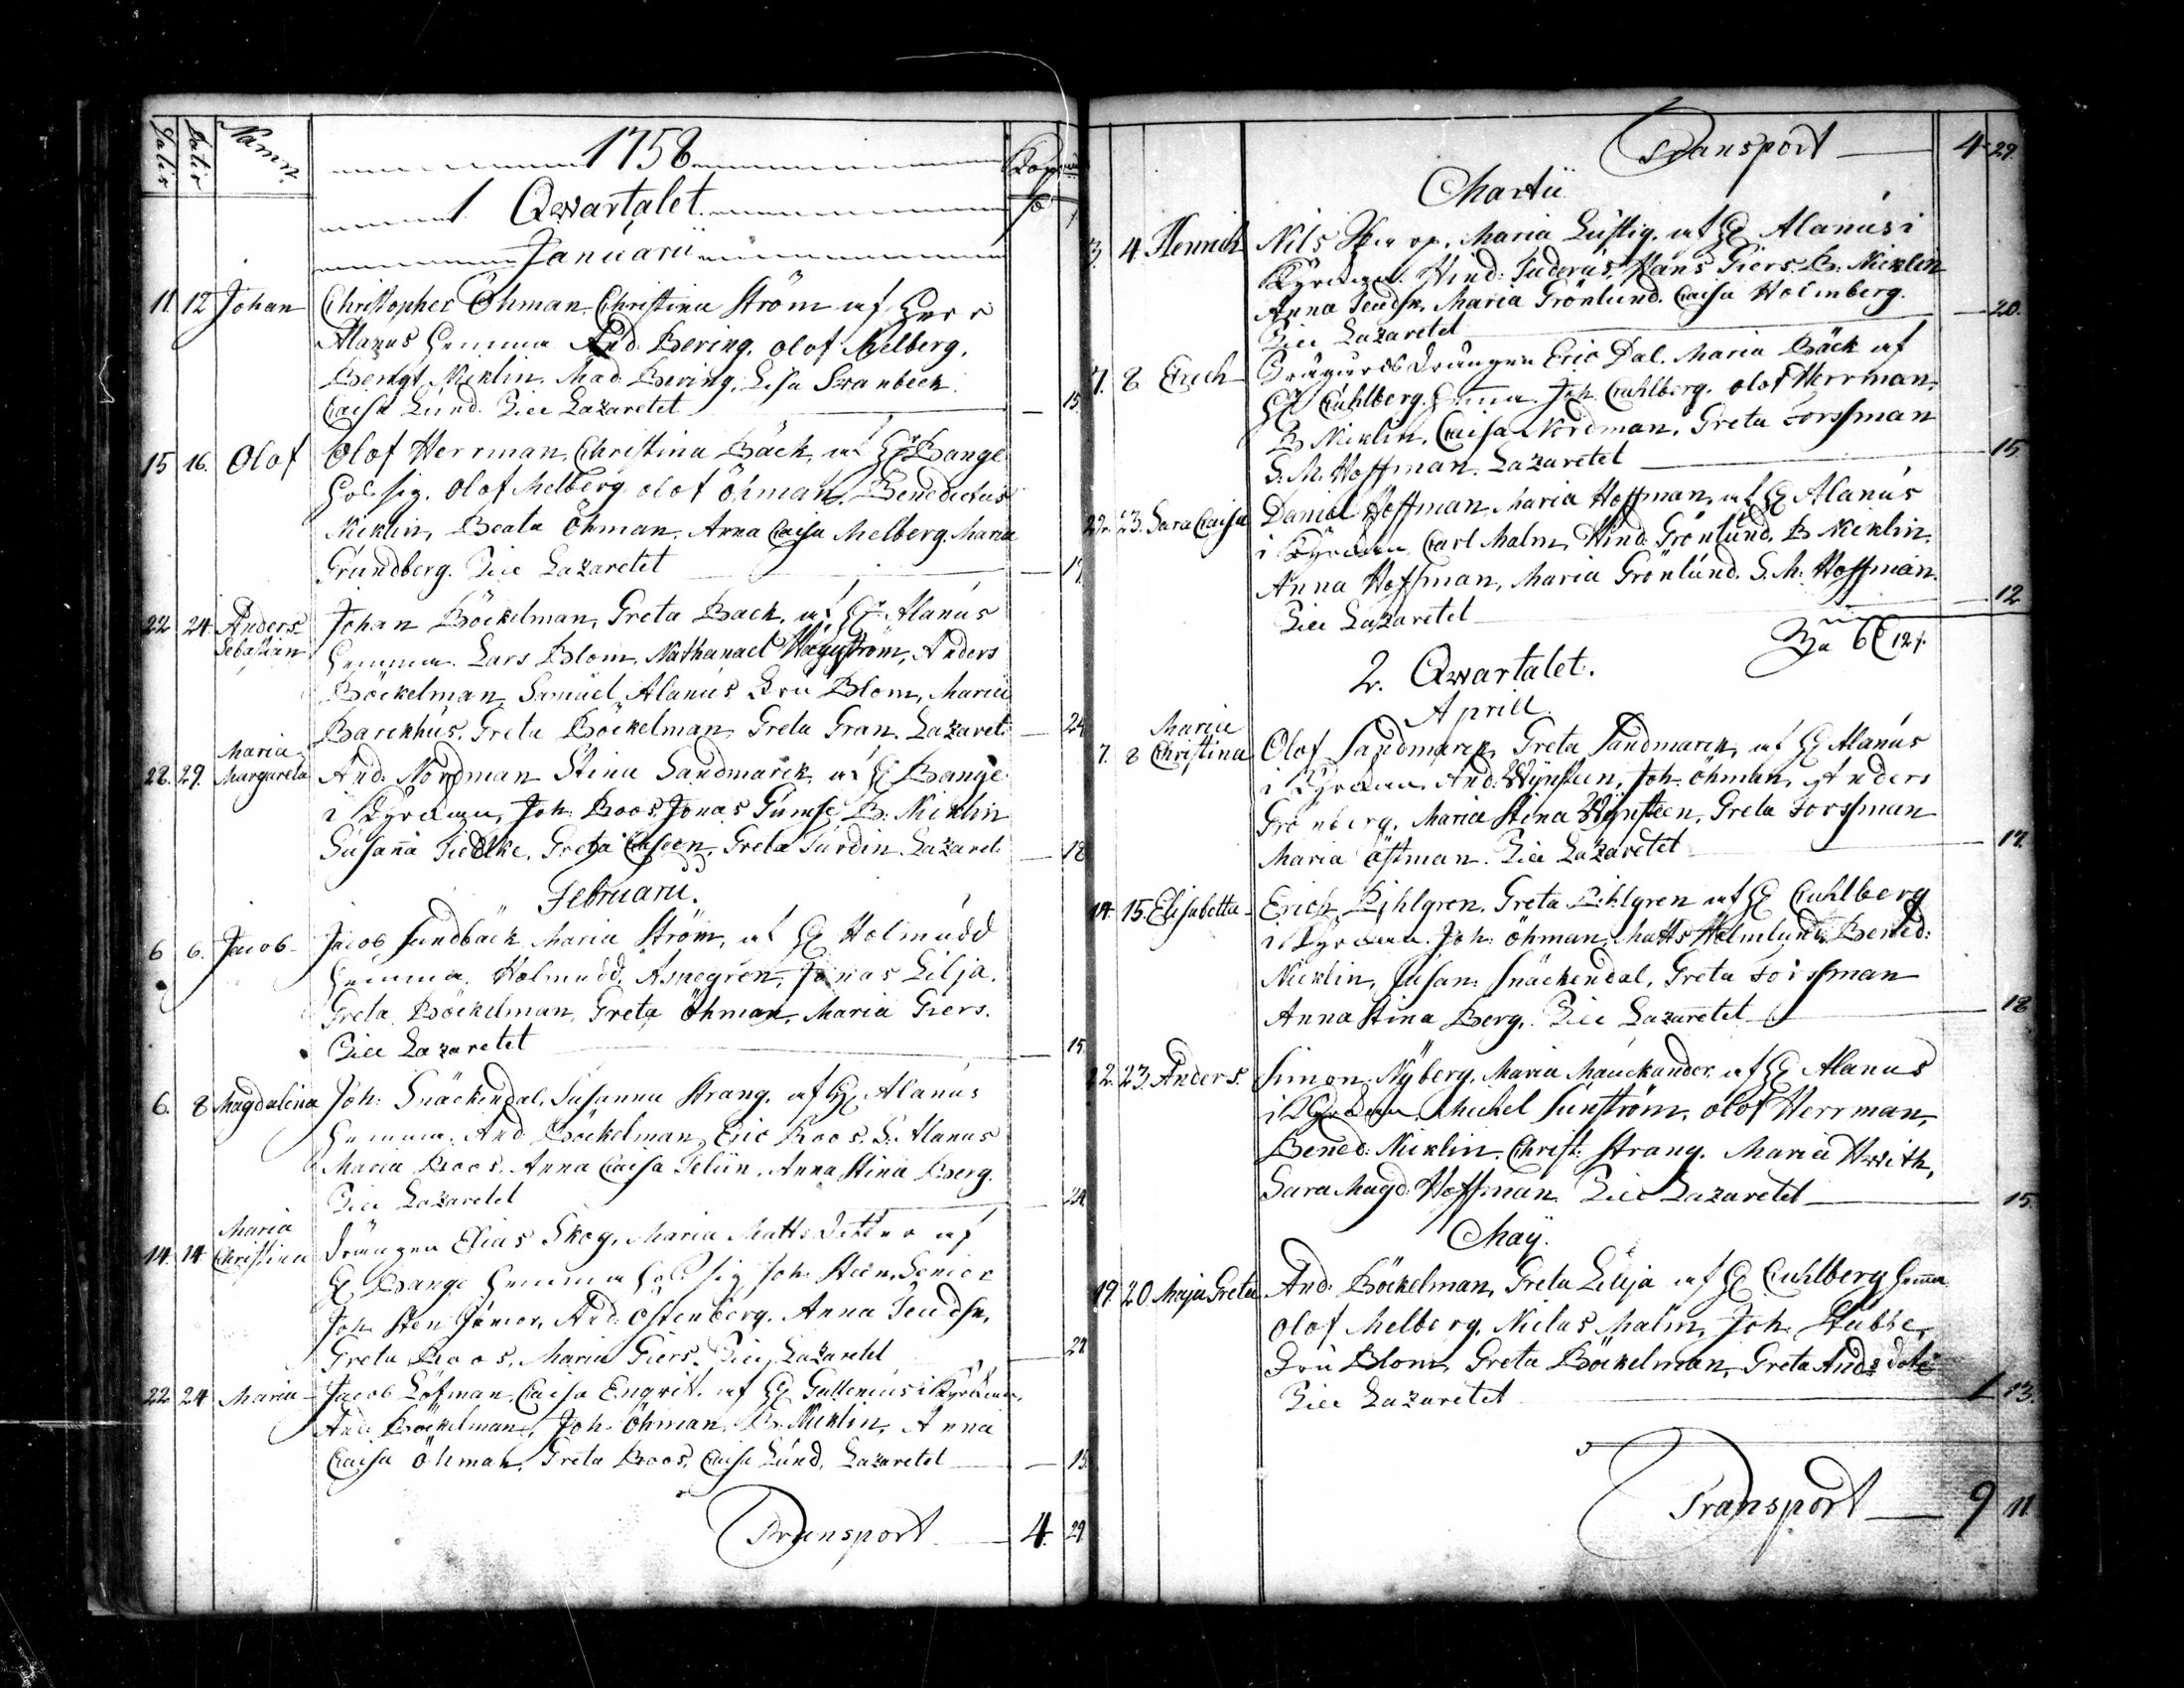 Datis Datis Namn. 1758 Kop
1 Qwartalet
Januarii
11. 12 Johan Christopher Öhman, Christina Ström af Herr
Alanus hemma And. Bering, Olof Melberg,
Bengt Nicklin. Mad. Bering, Lisa Swanbeck
Caisa Lund. Till Lazaretet — 15
15 16. Olof Olof Herrman, Christina Bäck, af Hr Bange
Olof Melberg, Olof Öhman, Benedictus
Nicklin, Beata Öhman, Anna Caisa Melberg, Maria
Grundberg. Till Lazaretet — 17
22 24 Anders Sebastian Johan Böckelman, Greta Back, af Hr Alanus
hemma. Lars Blom, Nathanael Hägström, Anders
Böckelman, Samuel Alanus Fru Blom, Maria
Barckhus, Greta Böckelman, Greta Gran. Lazaret. — 24
28. 29. Maria Margareta And. Nordman Stina Sandmarck, af H Bange
i Kyrckan, Joh. Boos, Jonas B. Nicklin
Susanna Greta Greta Lazaret. — 18
Februarii.
6 6. Jacob Jacob Sundbäck Maria Ström, af H Holmudd
hemma. Holmudd, Asnegren, Jonas Lilja.
Greta Böckelman, Greta Öhman, Maria Giers.
Till Lazaretet — 15.
6. 8 Magdalena Joh. Snäckendal, Susanna Strang. af H Alanus
hemma. And. Böckelman, Eric Boos, S. Alanus
Maria Boos, Anna Caisa Anna Stina Berg.
Till Lazaretet — 24
14. 14 Maria Christina Drängen Elias Skog, Maria Matts dotter af
H Bange hemma Joh. Steen Senior
Joh. Sten Junior, And. Östenberg. Anna
Greta Boos, Maria Giers. Till Lazaretet — 24
22 24 Maria Jacob Löfman, Caisa Engvit. af H i Kyrckan,
And. Böckelman, Joh. Öhman, B. Nicklin, Anna
Caisa Öhman, Greta Boos, Caisa Lund, Lazaretet — 15
Transport — 4. 29
Transport — 4 29.
Martii
3. 4 Henrich Nils Maria Lustig. af H Alanus i
Kyrckan. Hind: Hans Giers. B. Nicklin
Anna Maria Grönlund. Caisa Holmberg.
Till Lazaretet — 20.
7. 8 Erich drängen Eric Dal. Maria Bäck af
H Cuhlberg. hemma. Joh. Cuhlberg. Olof Herrman,
B Nicklin, Caisa Nordman, Greta Forssman
S. M. Hoffman. Lazaretet — 15
22. 23. Sara Caisa Daniel Hoffman, Maria Hoffman, af H Alanus
i Kyrckan Carl Malm, Hind. Grönlund, B Nicklin,
Anna Hoffman, Maria Grönlund. S. M. Hoffman.
Till Lazaretet — 12
6 12
2. Qwartalet.
Aprill.
7. 8 Maria Christina Olof Sandmarck, Greta Sandmarck, af H Alanus
i Kyrckan, And. Wynsteen, Joh. Öhman, Anders
Grönberg. Maria Stina Wynsteen, Greta Forssman
Maria Östman. Till Lazaretet — 17.
14 15. Elisabetta Erich Pihlgren. Greta Pihlgren af H Cuhlberg
i Kyrckan. Joh. Öhman, Matts Holmlund. Bened:
Nicklin, Susan: Snäckendal, Greta Forssman
Anna Stina Berg. Till Lazaretet — 18
22. 23. Anders. Simon Nyberg, Maria Mauckander, af H Alanus
i Kyrckan, Michel Sunström, Olof Herrman,
Bened: Nicklin, Christ: Strang. Maria
Sara Magd. Hoffman Till Lazaretet — 15.
Maÿ.
19. 20 Maja Greta And. Böckelman, Greta Lilja af H Cuhlberg hema
Olof Melberg, Niclas Malm, Joh. Stubbe,
Fru Blom, Greta Böckelman, Greta Ands dotr
Till Lazaretet — 1 13.
Transport — 9 11